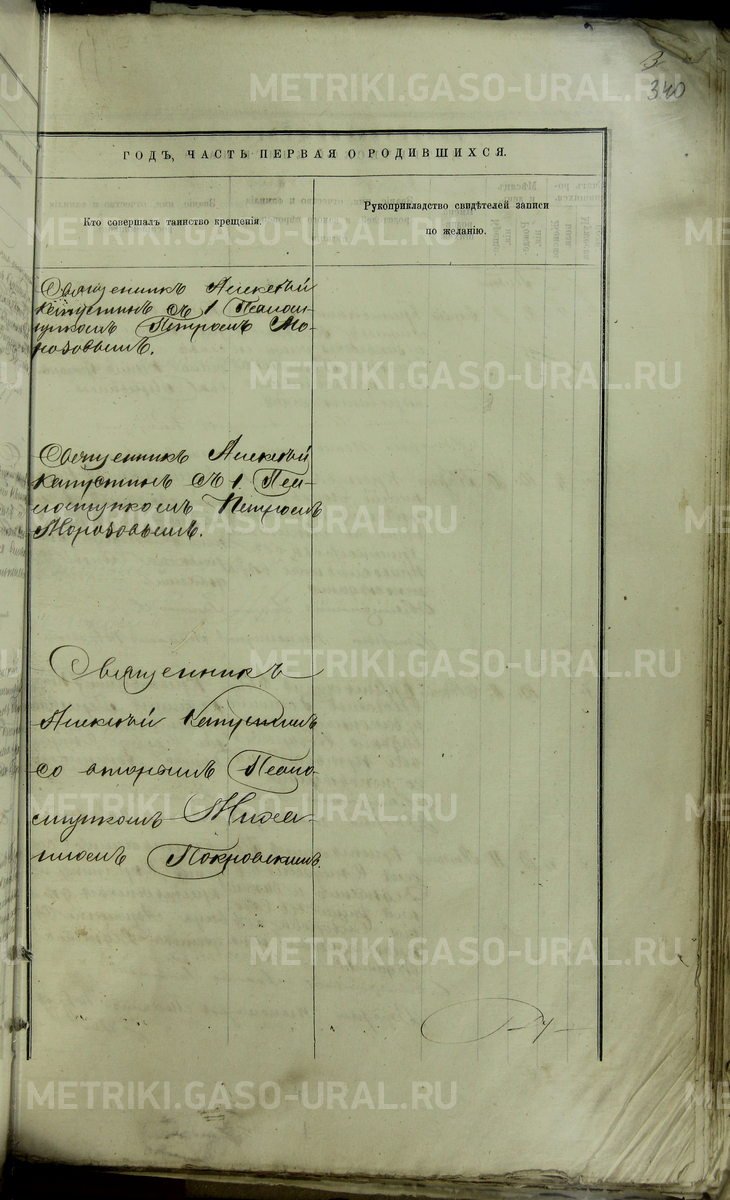 3
340
ГОДЪ, ЧАСТЬ ПЕРВАЯ О РОДИВШИХСЯ.
Кто совершалъ таинство крещенія.
Рукоприкладство свидѣтелей записи
по желанію.
Священникъ Алексѣй
Капустинъ съ 1 Псалом-
щикомъ Петромъ Мо-
розовымъ.
Священникъ Алексѣй
Капустинъ съ 1. Пса-
ломщикомъ Петромъ
Морозовымъ.
Священникъ
Алексѣй Капустинъ
со вторымъ Псало-
мщикомъ Миха-
иломъ Покровскимъ.
METRIKI.GASO-URAL.RU
METRIKI.GASO-URAL.RU
METRIKI.GASO-URAL.RU
METRIKI.GASO-URAL.RU
METRIKI.GASO-URAL.RU
METRIKI.GASO-URAL.RU
METRIKI.GASO-URAL.RU
METRIKI.GASO-URAL.RU